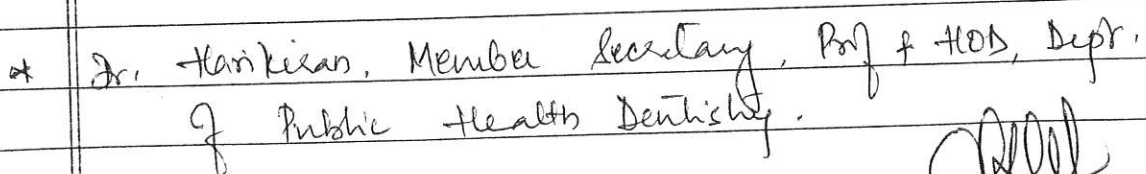 * Dr. Harikisan, Member Secretary, Prof & HOD, Dept.
of Public Health Dentistry.